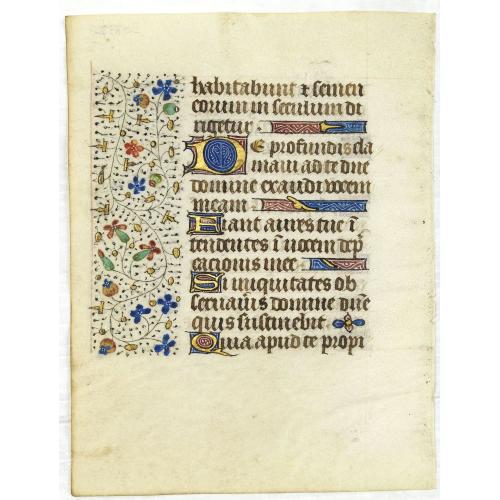 habitabunt & semen
eorum in seculum di
rigetur.
De profundis cla
mavi ad te dne
domine exaudi vocem
meam.
Fiant aures tue i
tendentes i vocem dep̄
cacionis mee.
Si iniquitates ob
servav̄is domine dn̄e
quis sustinebit.
Quia apud te propi